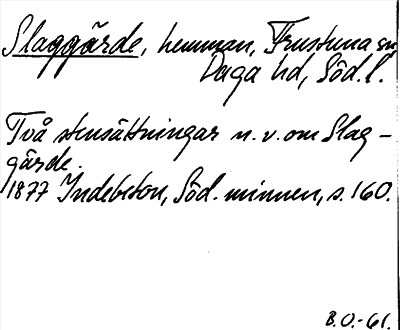 Slaggärde, hemman, Frustuna sn,
Daga hd, Söd. l.
Två stensättningar n. v. om Slag-
gärde.
1877 Indebetou, Söd. minnen, s. 160.
B.O.-61.